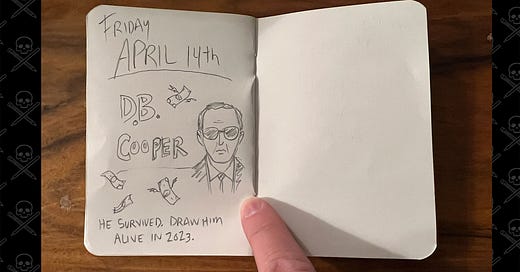 FRIDAY
APRIL 14th
D.B.
COOPER
HE SURVIVED. DRAW HIM
ALIVE IN 2023.